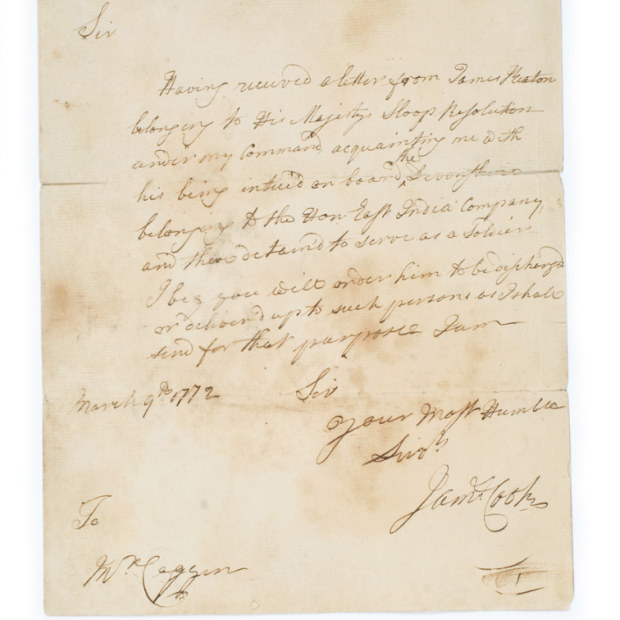 Sir
Having received a letter from James Keaton
belonging to His Majestys Sloop Resolution
under my Command acquainting me with
his being inticed on board the Devonshire
belonging to the Hon East India Company,
and there detaind to serve as a Soldier
I beg you will order him to be discharged
or deliverd up to such persons as I shall
send for that purpose I am
March 9th 1772
Sir
Your Most Humble
Servt
Jams Cook
To
Mr